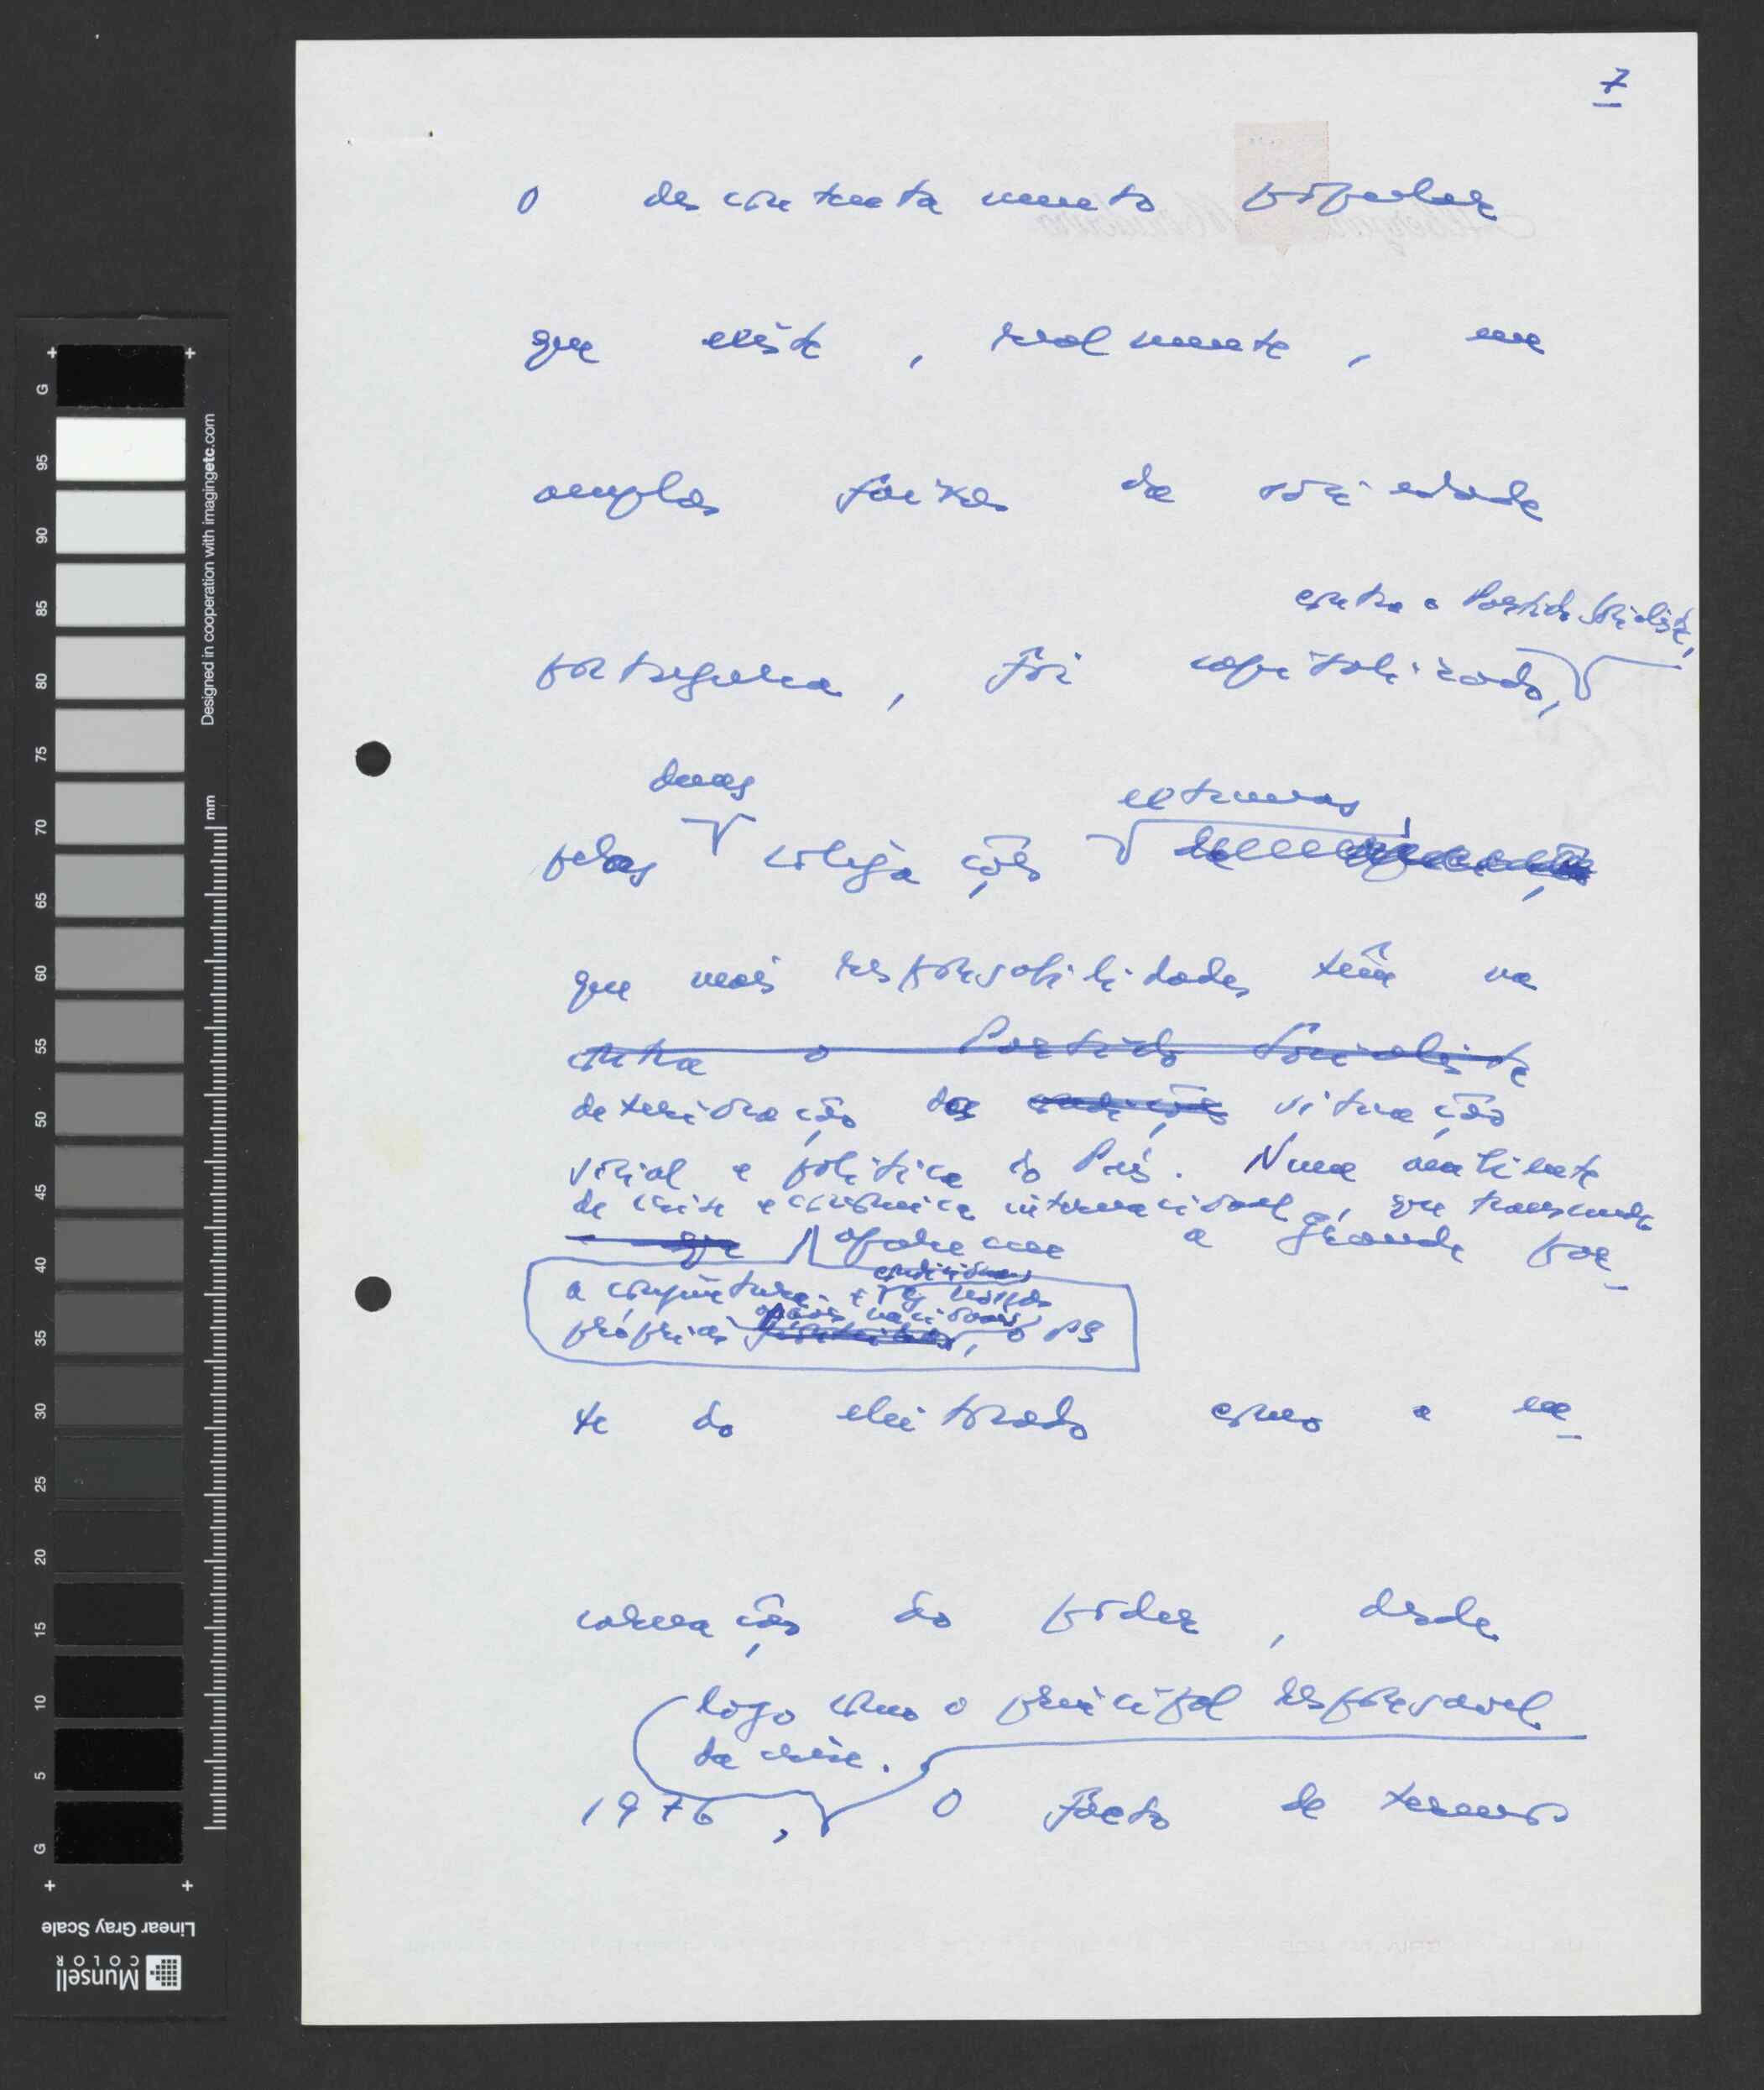 7
O descontentamento popular
que existe, realmente, em
amplas faixas da sociedade
contra o Partido Socialista,
portuguesa, foi capitalizado,
duas extremas,
pelas coligações
que mais responsabilidades têm na
contra o Partido Socialista
deterioração da condições situação
social e política do País. Num ambiente
de crise económica internacional, que transcende
que aparecem a grande par-
condiciona
a conjuntura e as nossas
opções nacionais
próprias, o PS
te do eleitorado como a en-
carnação do poder, desde
logo como o principal responsável
da crise.
1976, O facto de termos
G 95 90 85 80 75 70 65 60 55 50 45 40 35 30 25 20 15 10 5 G
Designed in cooperation with imagingetc.com
mm
Linear Gray Scale
Munsell
COLOR